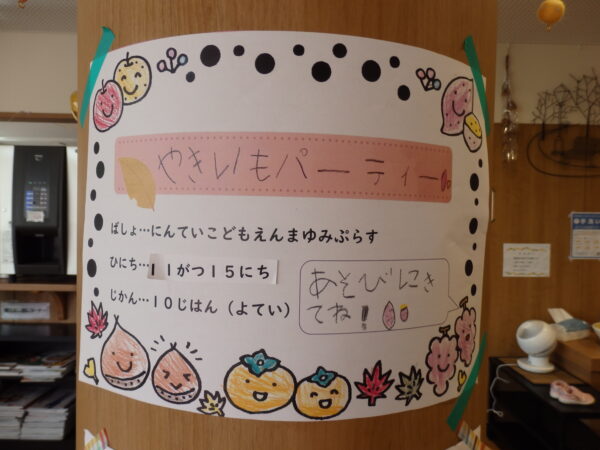 やきいもパーティー
ばしょ…にんていこどもえんまゆみぷらす
ひにち…11がつ15にち
じかん…10じはん（よてい）
あそびにき
てね!